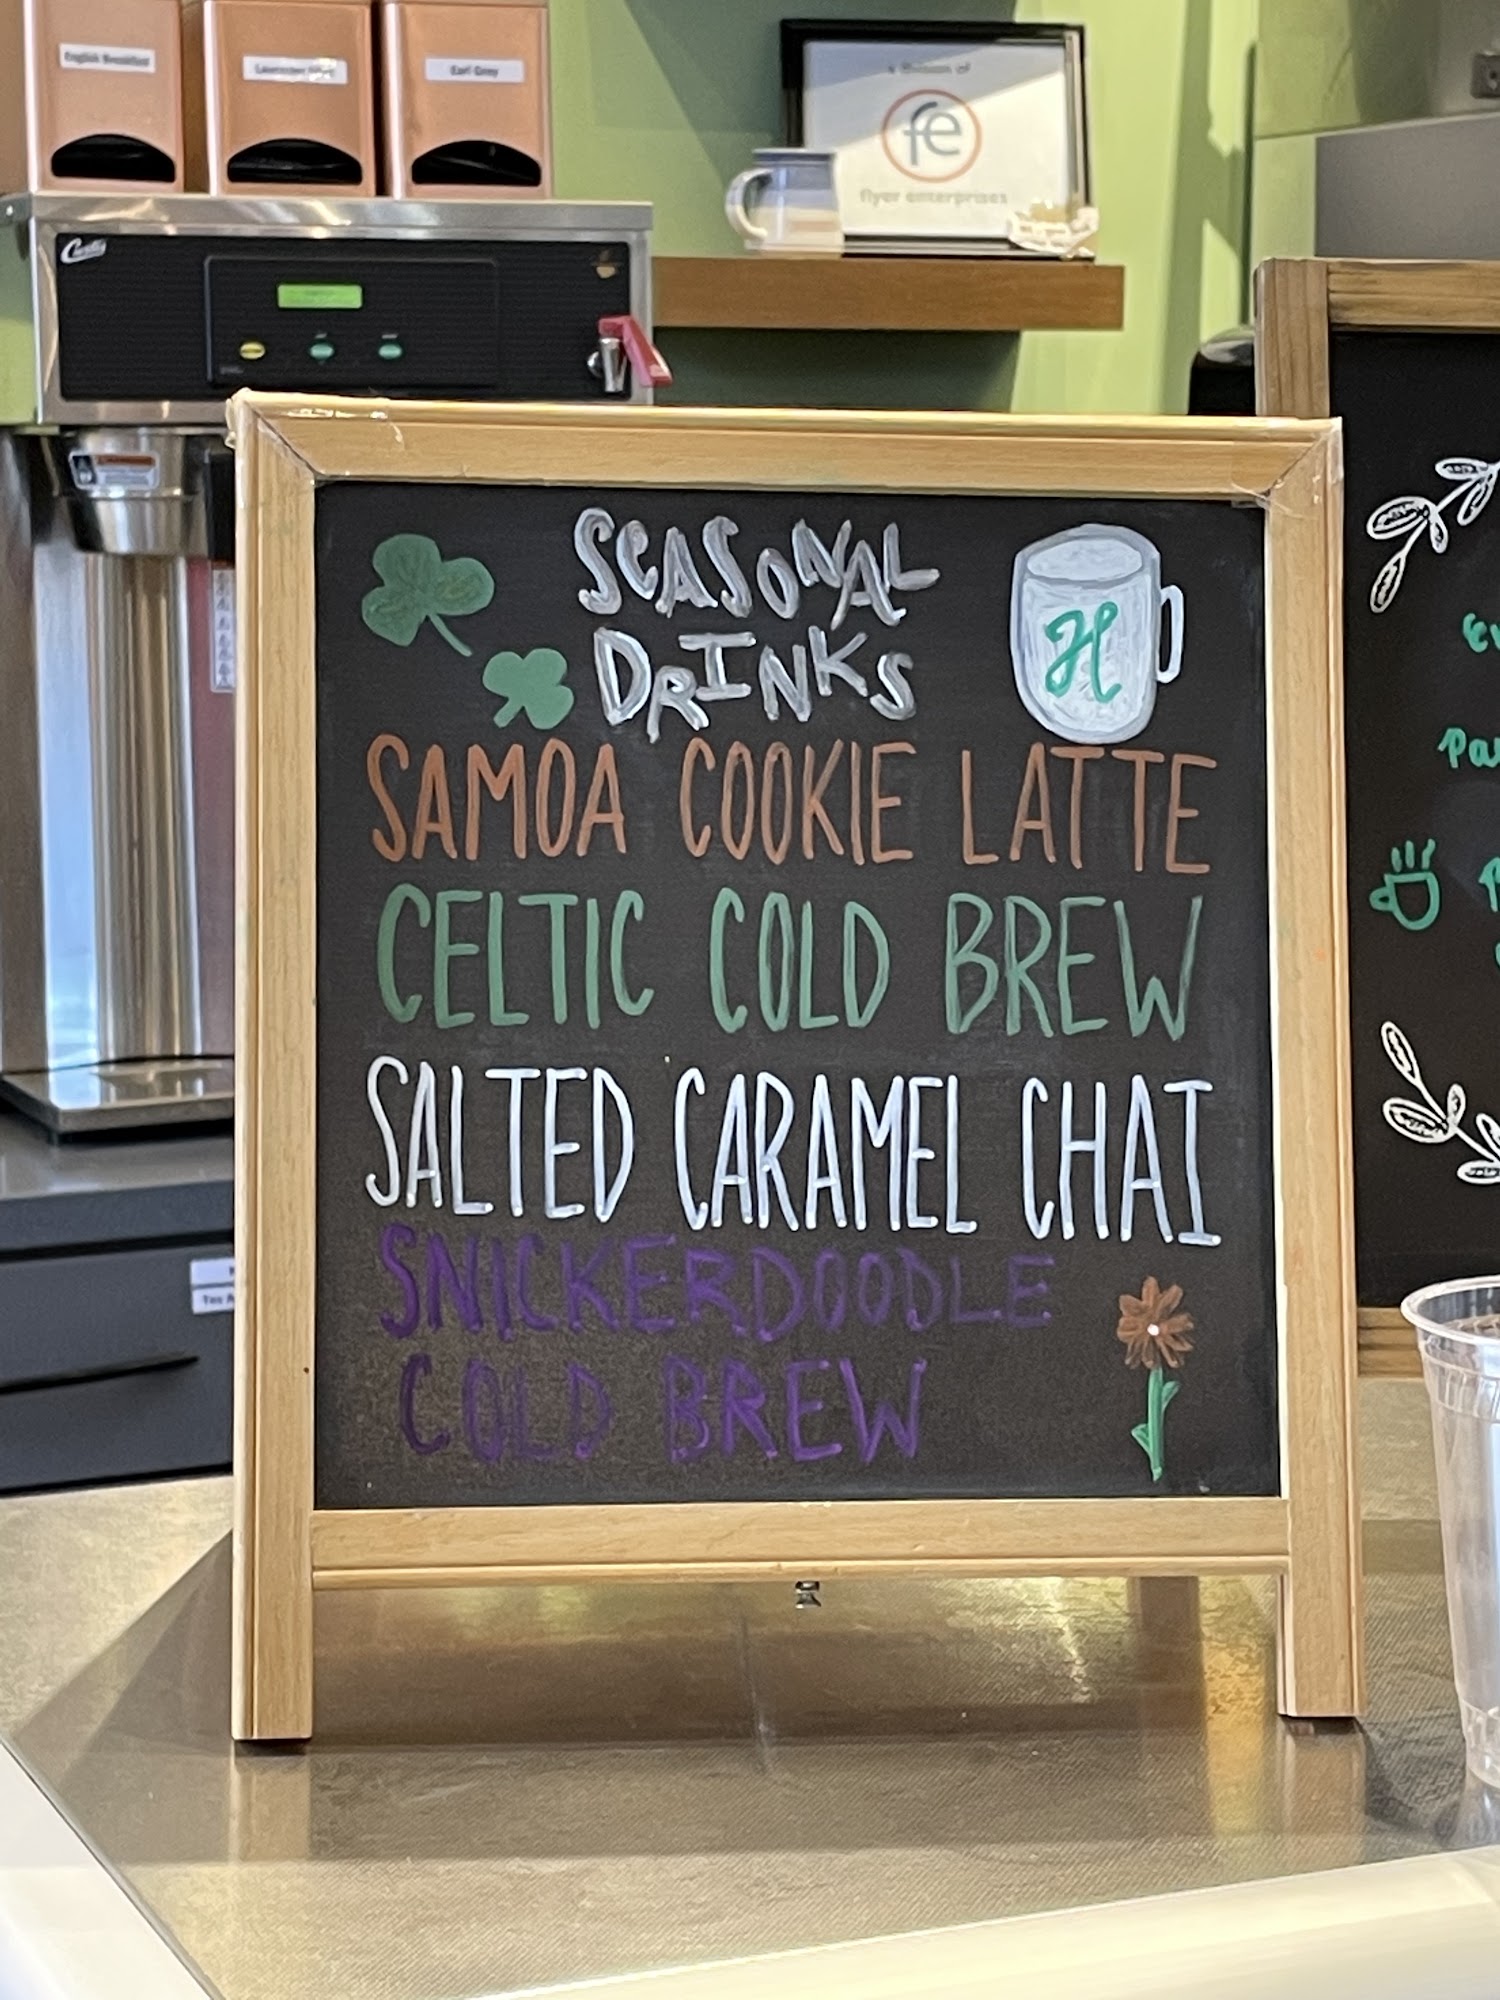 English Breakfast
Earl Grey
a division of
fe
flyer enterprises
Curtis
SEASONAL
DRINKS
H
SAMOA COOKIE LATTE
CELTIC COLD BREW
SALTED CARAMEL CHAI
SNICKERDOODLE
COLD BREW